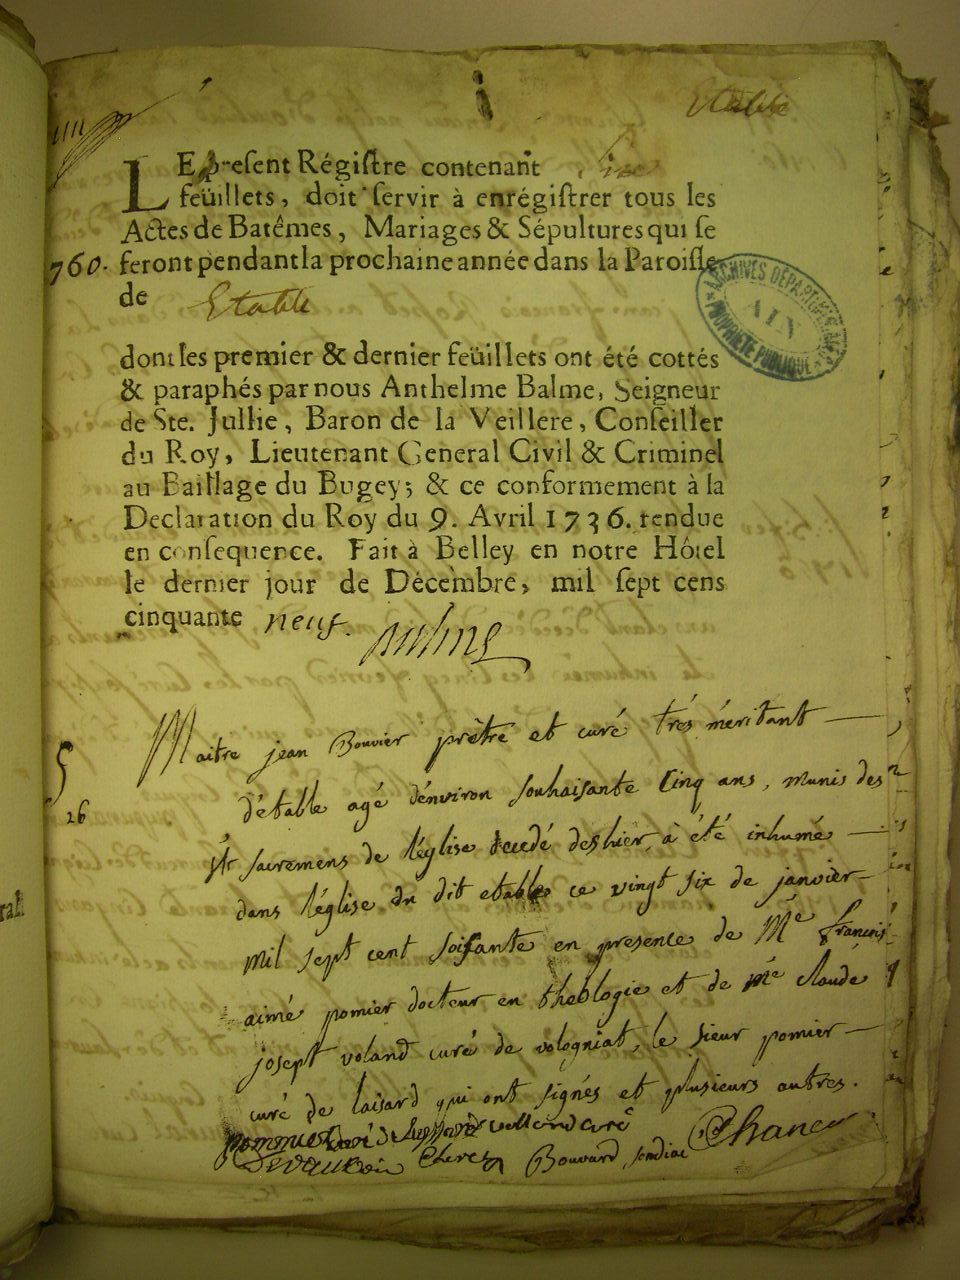 Etable
LE present Régiſtre contenant six
feüillets, doit ſervir à enrégiſtrer tous les
Actes de Batêmes, Mariages & Sépultures qui ſe
760. feront pendant la prochaine année dans la Paroiſſe
de Etable
ARCHIVES DÉPARTEMENTALES
AIN
PROPRIÉTÉ PUBLIQUE
dont les premier & dernier feüillets ont été cottés
& paraphés par nous Anthelme Balme, Seigneur
de Ste. Jullie, Baron de la Veillere, Conſeiller
du Roy, Lieutenant General Civil & Criminel
au Baillage du Bugey; & ce conformement à la
Declaration du Roy du 9. Avril 1736. rendue
en conſequence. Fait à Belley en notre Hôtel
le dernier jour de Décembre, mil ſept cens
cinquante neuf.
Maitre jean Bouvier prêtre et curé trés méritant
5
26
d'étable agé d'énviron souhaisante Cinq ans, munis des
sts sacremens de l'église décedé des hier, à été inhumé
dans l'église du dit etable ce vingt six de janvier
mil sept cent soisante en presence de Me francois
aimé pomier docteur en theologie et de me claude
josept voland curé de vologniat, le sieur pomier
curé de laisard qui ont signés et plusieurs autres.
pommier curé de vollend curé
Bouvard sendic Chanel